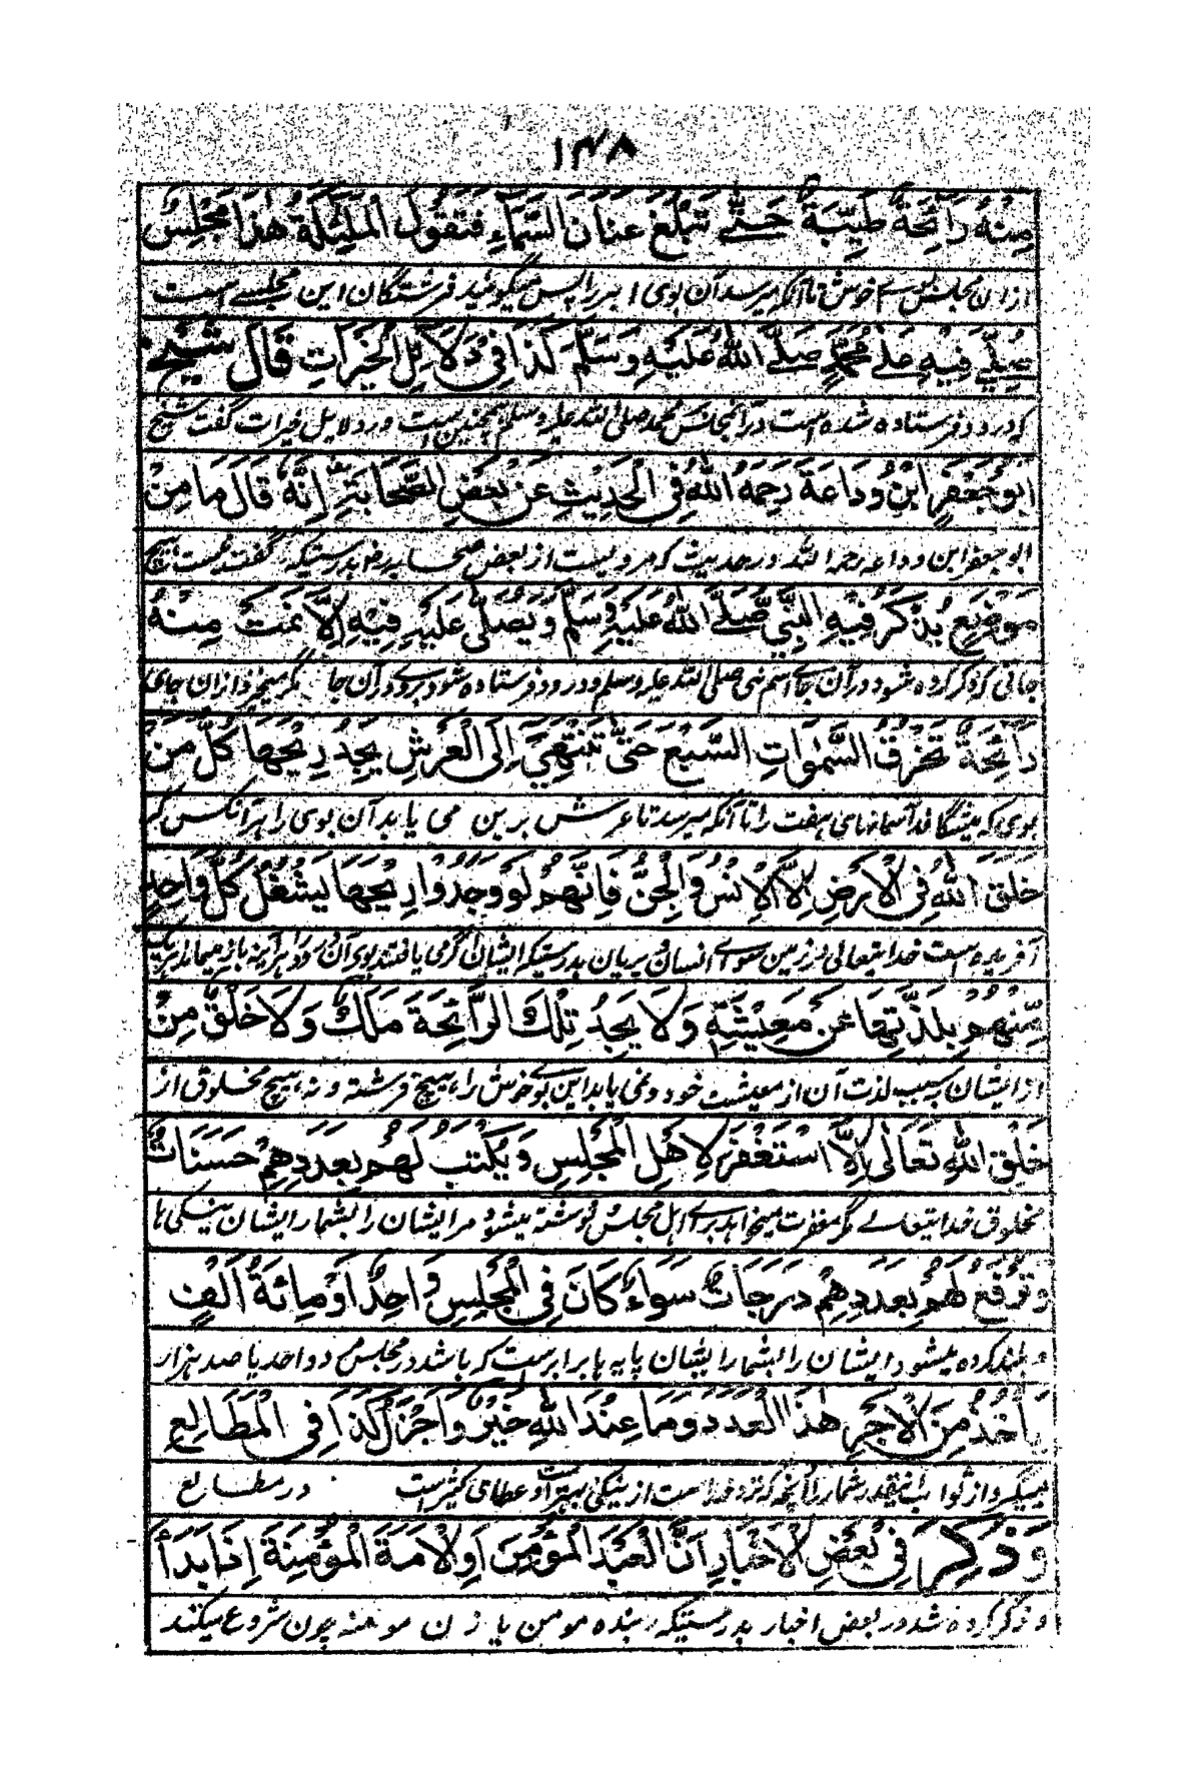 ١٣٨
مِنْهُ رَائِحَةٌ طَيِّبَةٌ حَتّٰى تَبْلُغَ عَنَانَ السَّمَآءِ فَتَقُولُ الْمَلٰئِكَةُ هٰذَا مَجْلِسٌ
ازان مجلس بوی خوش تا آنکه میرسد آن بوی ابر را پس میگویند فرشتگان این مجلسے است
صُلِّيَ فِيْهِ عَلٰى مُحَمَّدٍ صَلَّى اللهُ عَلَيْهِ وَسَلَّمَ كَذَا فِيْ دَلَائِلِ الْخَيْرَاتِ قَالَ شَيْخُ
که درود فرستاده شده است در آن مجلس محمد صلی الله علیه وسلم همچنین است در دلایل خیرات گفت شیخ
ابُو جَعْفَرٍ ابْنُ وَدَاعَةَ رَحِمَهُ اللهُ فِي الْحَدِيْثِ عَنْ بَعْضِ الصَّحَابَةِ إِنَّهُ قَالَ مَا مِنْ
ابو جعفر ابن وداعه رحمه الله در حدیث که مرویست از بعض صحابه بدرستیکه گفتند نیست هیچ
مَوْضِعٍ يُذْكَرُ فِيْهِ النَّبِيُّ صَلَّى اللهُ عَلَيْهِ وَسَلَّمَ وَيُصَلّٰى عَلَيْهِ فِيْهِ إِلَّا نَمَتْ مِنْهُ
جائی که ذکر کرده شود در آن جاے اسم نبی صلی الله علیه وسلم و درود فرستاده شود بروے در آن جا مگر میخیزد ازان جای
رَائِحَةٌ تَخْرُقُ السَّمٰوَاتِ السَّبْعَ حَتّٰى تَنْتَهِيَ إِلَى الْعَرْشِ يَجِدُ رِيْحَهَا كُلُّ مَنْ
بوی که میشگافد آسمانهای هفت را تا آنکه میرسد تا عرش برین می یابد آن بوی را هر آنکس که
خَلَقَ اللهُ فِي الْاَرْضِ إِلَّا الْاِنْسُ وَالْجِنُّ فَاِنَّهُمْ لَوْ وَجَدُوْا رِيْحَهَا يَشْغَلُ كُلَّ وَاحِدٍ
آفریده است خدایتعالی در زمین سوای انسان و پریان بدرستیکه ایشان اگر می یافتند بوی آن درود را هر آینه باز میماند هر یک
مِّنْهُمْ بِلَذَّتِهَا عَنْ مَعِيْشَتِهٖ وَلَا يَجِدُ تِلْكَ الرَّائِحَةَ مَلَكٌ وَلَا خَلْقٌ مِنْ
از ایشان بسبب لذت آن از معیشت خود و نمی یابد این بوے خوش را هیچ فرشته و نه هیچ مخلوق از
خَلْقِ اللهِ تَعَالٰى إِلَّا اسْتَغْفَرَ لِاَهْلِ الْمَجْلِسِ وَيُكْتَبُ لَهُمْ بِعَدَدِهِمْ حَسَنَاتٌ
مخلوق خدایتعالے مگر مغفرت میخواهد برای اهل مجلس نوشته میشود مر ایشان را بشمار ایشان نیکی ها
وَتُرْفَعُ لَهُمْ بِعَدَدِهِمْ دَرَجَاتٌ سَوَاءٌ كَانَ فِي الْمَجْلِسِ وَاحِدٌ اَوْ مِائَةُ اَلْفٍ
و بلند کرده میشود ایشان را بشمار ایشان پایه ها برابرست که باشد در مجلس واحد یا صد هزار
يَأْخُذُ مِنَ الْاَجْرِ هٰذَا الْعَدَدَ وَمَا عِنْدَ اللهِ خَيْرٌ وَّاَجْزَلُ كَذَا فِي الْمَطَالِعِ
میگیرد از ثواب اینقدر شمار را آنچه که نزد خداست از نیکی بهتر است و عطای کثیر است در مطالع
وَذُكِرَ فِيْ بَعْضِ الْاَخْبَارِ اَنَّ الْعَبْدَ الْمُؤْمِنَ اَوِ الْاَمَةَ الْمُؤْمِنَةَ إِذَا بَدَأَ
و ذکر کرده شد در بعض اخبار بدرستیکه بنده مومن یا زن مومنه چون شروع میکند